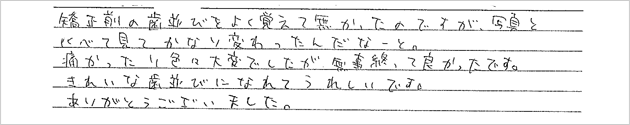 矯正前の歯並びをよく覚えて無かったのですが、写真と
比べて見てかなり変わったんだなーと。
痛かったり色々大変でしたが、無事終って良かったです。
きれいな歯並びになれてうれしいです。
ありがとうございました。